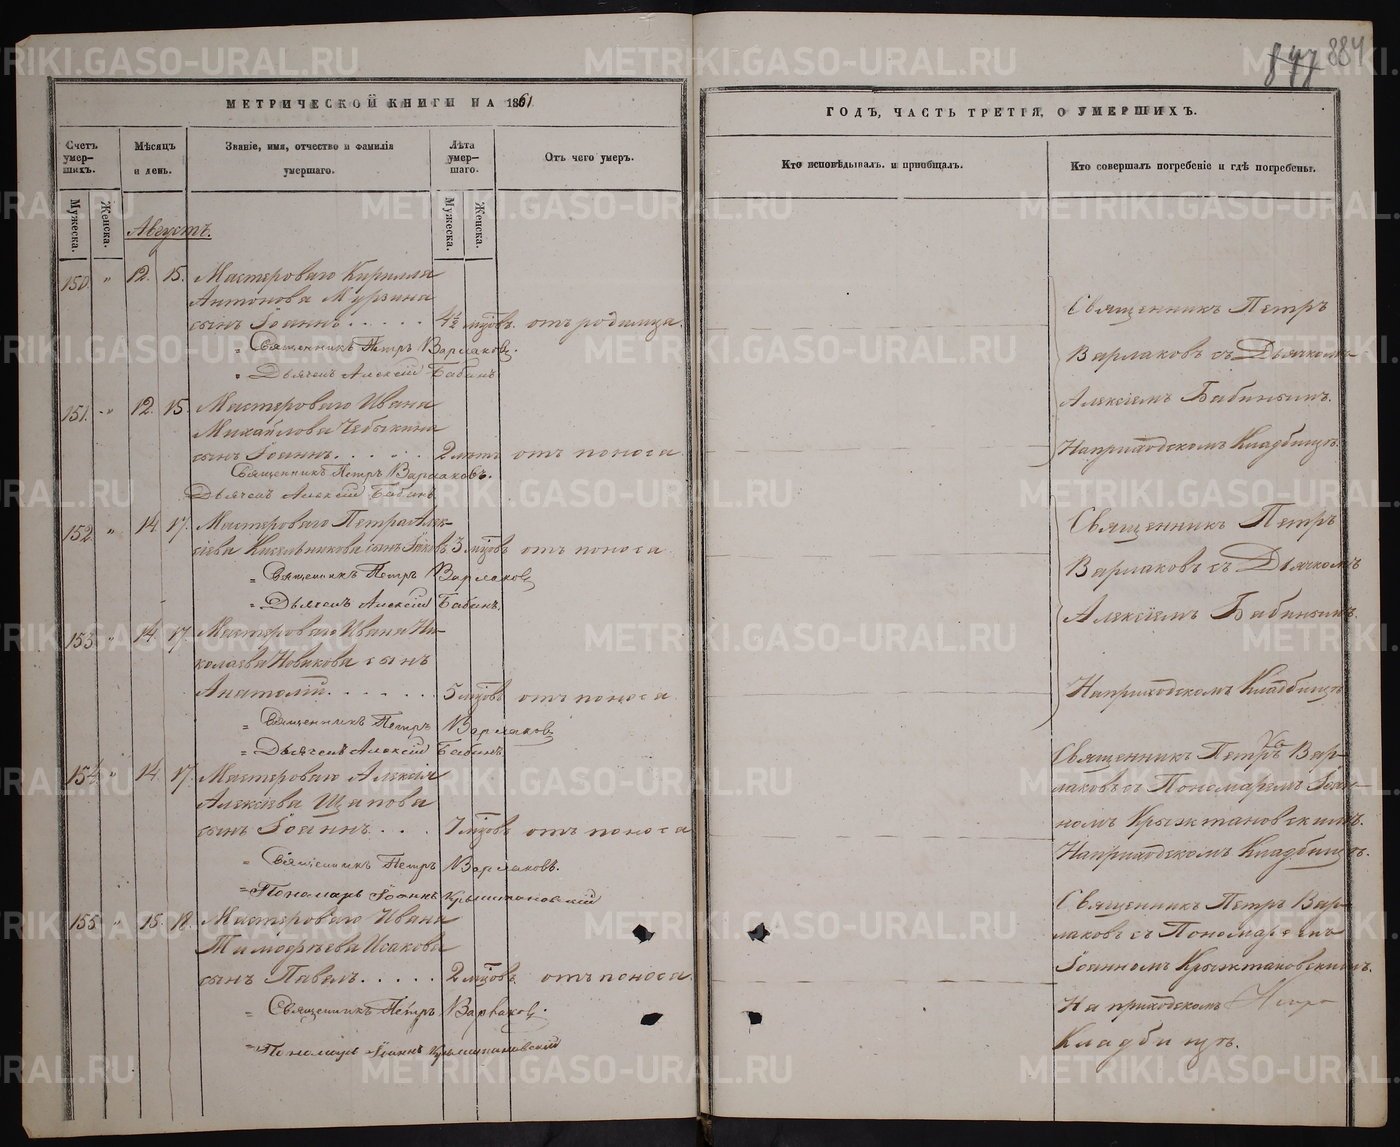 847 884
МЕТРИЧЕСКОЙ КНИГИ НА 1861
ГОДЪ, ЧАСТЬ ТРЕТІЯ, О УМЕРШИХЪ.
Счетъ умер-шихъ.
Мужеска.
Женска.
Мѣсяцъ и день.
Званіе, имя, отчество и фамилія умершаго.
Лѣта умер-шаго.
Мужеска.
Женска.
Отъ чего умеръ.
Кто исповѣдывалъ и пріобщалъ.
Кто совершалъ погребеніе и гдѣ погребены.
Августъ.
150. " 12. 15. Мастероваго Кирилла
Антонова Мурзина
сынъ Іоаннъ 4½ мцовъ. отъ родимца.
" Священникъ Петръ Варлаковъ.
" Дьячекъ Алексій Бабинъ
Священникъ Петръ
Варлаковъ съ Дьячкомъ
Алексіемъ Бабинымъ.
На приходскомъ Кладбищѣ.
151. " 12. 15. Мастероваго Ивана
Михайлова Чебыкина
сынъ Іоаннъ 2 лѣтъ отъ поноса
Священникъ Петръ Варлаковъ.
Дьячекъ Алексій Бабинъ
152 " 14. 17. Мастероваго Петра Алек-
сіева Кисельникова сынъ Іаковъ 3 мцовъ отъ поноса
" Священникъ Петръ Варлаковъ
" Дьячекъ Алексій Бабинъ
Священникъ Петръ
Варлаковъ съ Дьячкомъ
Алексіемъ Бабинымъ.
На приходскомъ Кладбищѣ
153. " 14. 17. Мастероваго Ивана Ни-
колаева Новикова сынъ
Анатолій 5 мцовъ отъ поноса
" Священникъ Петръ Варлаковъ
" Дьячекъ Алексій Бабинъ
154. " 14. 17. Мастероваго Алексія
Алексіева Щапова
сынъ Іоаннъ 7 мцовъ отъ поноса
" Священникъ Петръ Варлаковъ.
" Пономарь Іоаннъ Крыжтановскій
Священникъ Петръ Вар-
лаковъ съ Пономаремъ Іоан-
номъ Крыжтановскимъ.
На приходскомъ Кладбищѣ.
155. " 15. 18. Мастероваго Ивана
Тимофѣева Исакова
сынъ Павелъ 2 мцовъ. отъ поноса.
" Священникъ Петръ Варлаковъ.
" Пономарь Іоаннъ Крыжтановскій
Священникъ Петръ Вар-
лаковъ съ Пономаремъ
Іоанномъ Крыжтановскимъ.
На приходскомъ
Кладбищѣ.
METRIKI.GASO-URAL.RU